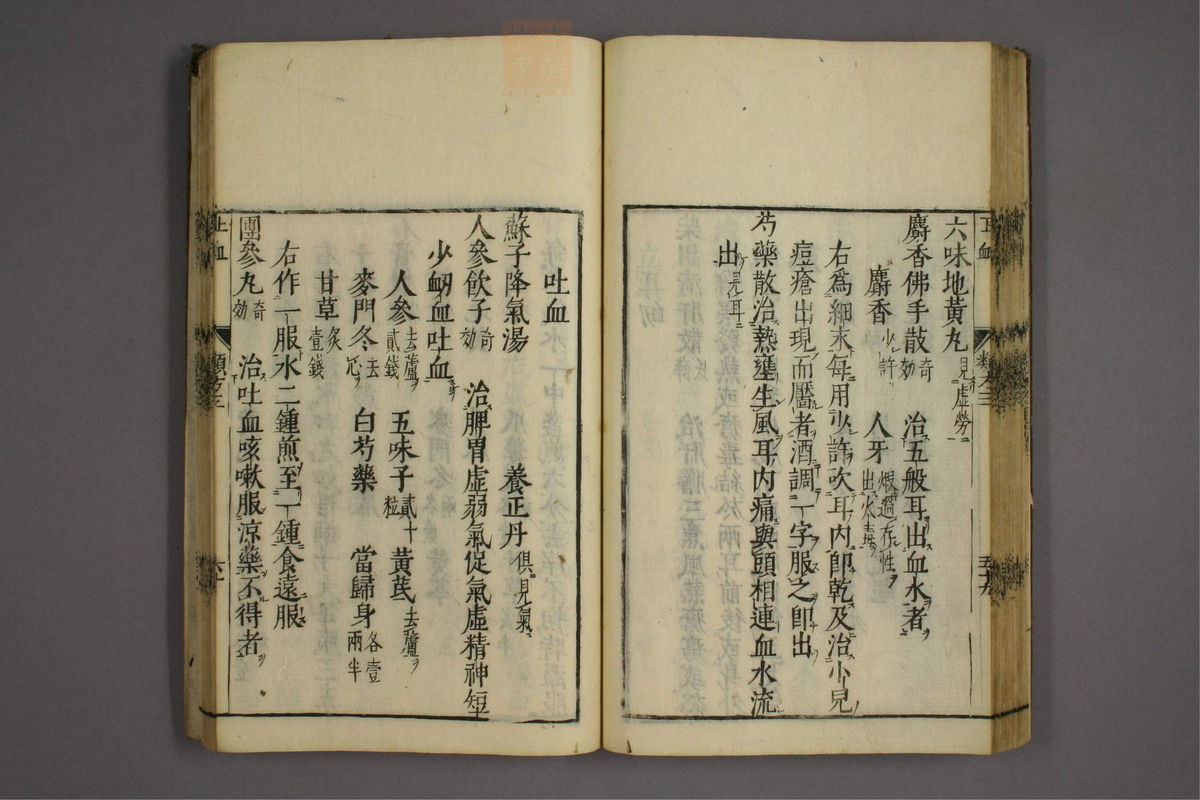 六味地黃丸見虛勞
麝香佛手散奇効 治五般耳出血水者
麝香少許 人牙煅過存性出火毒
右爲細末每用少許吹耳內卽乾及治小兒
痘瘡出現而靨者酒調一字服之卽出
芍藥散治熱壅生風耳內痛與頭相連血水流
出見耳
吐血
蘇子降氣湯 養正丹俱見氣
人參飮子奇効 治脾胃虛弱氣促氣虛精神短
少衂血吐血
人參去蘆貳錢 五味子貳十粒 黃芪去蘆
麥門冬去心 白芍藥 當歸身各壹兩半
甘草炙壹錢
右作一服水二鍾煎至一鍾食遠服
團參丸奇効 治吐血咳嗽服涼藥不得者